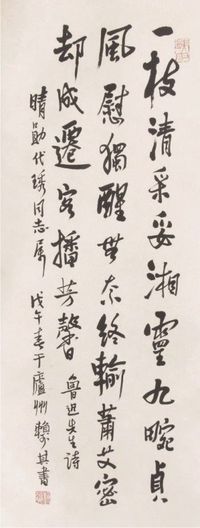 一枝清采妥湘靈九畹貞
風慰獨醒無奈終輸蕭艾密
却成遷客播芳馨 魯迅先生詩
晴勛代琇同志屬
戊午春于廬州 賴少其書